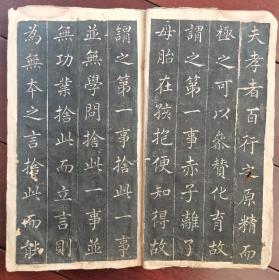 夫孝者百行之原精而
極之可以參贊化育故
謂之第一事赤子離了
母胎在孩抱便知得故
謂之第一事捨此一事
並無學問捨此一事並
無功業捨此而立言則
為無本之言捨此而能